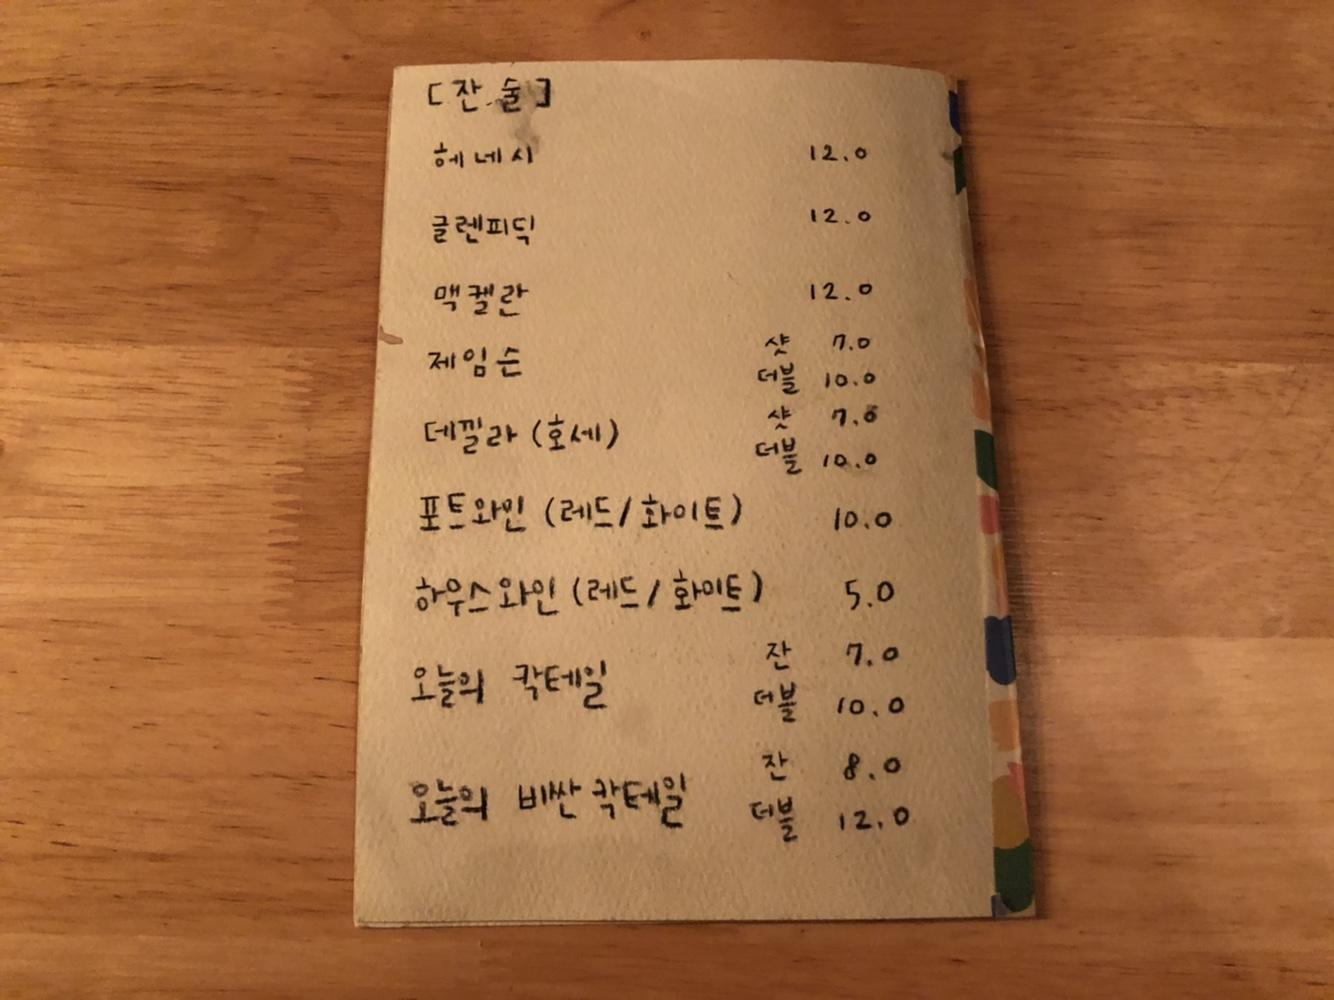 [잔 술]
헤네시 12.0
글렌피딕 12.0
맥켈란 12.0
제임슨 샷 7.0
더블 10.0
데낄라 (호세) 샷 7.0
더블 10.0
포트와인 (레드/화이트) 10.0
하우스와인 (레드/화이트) 5.0
오늘의 칵테일 잔 7.0
더블 10.0
오늘의 비싼 칵테일 잔 8.0
더블 12.0